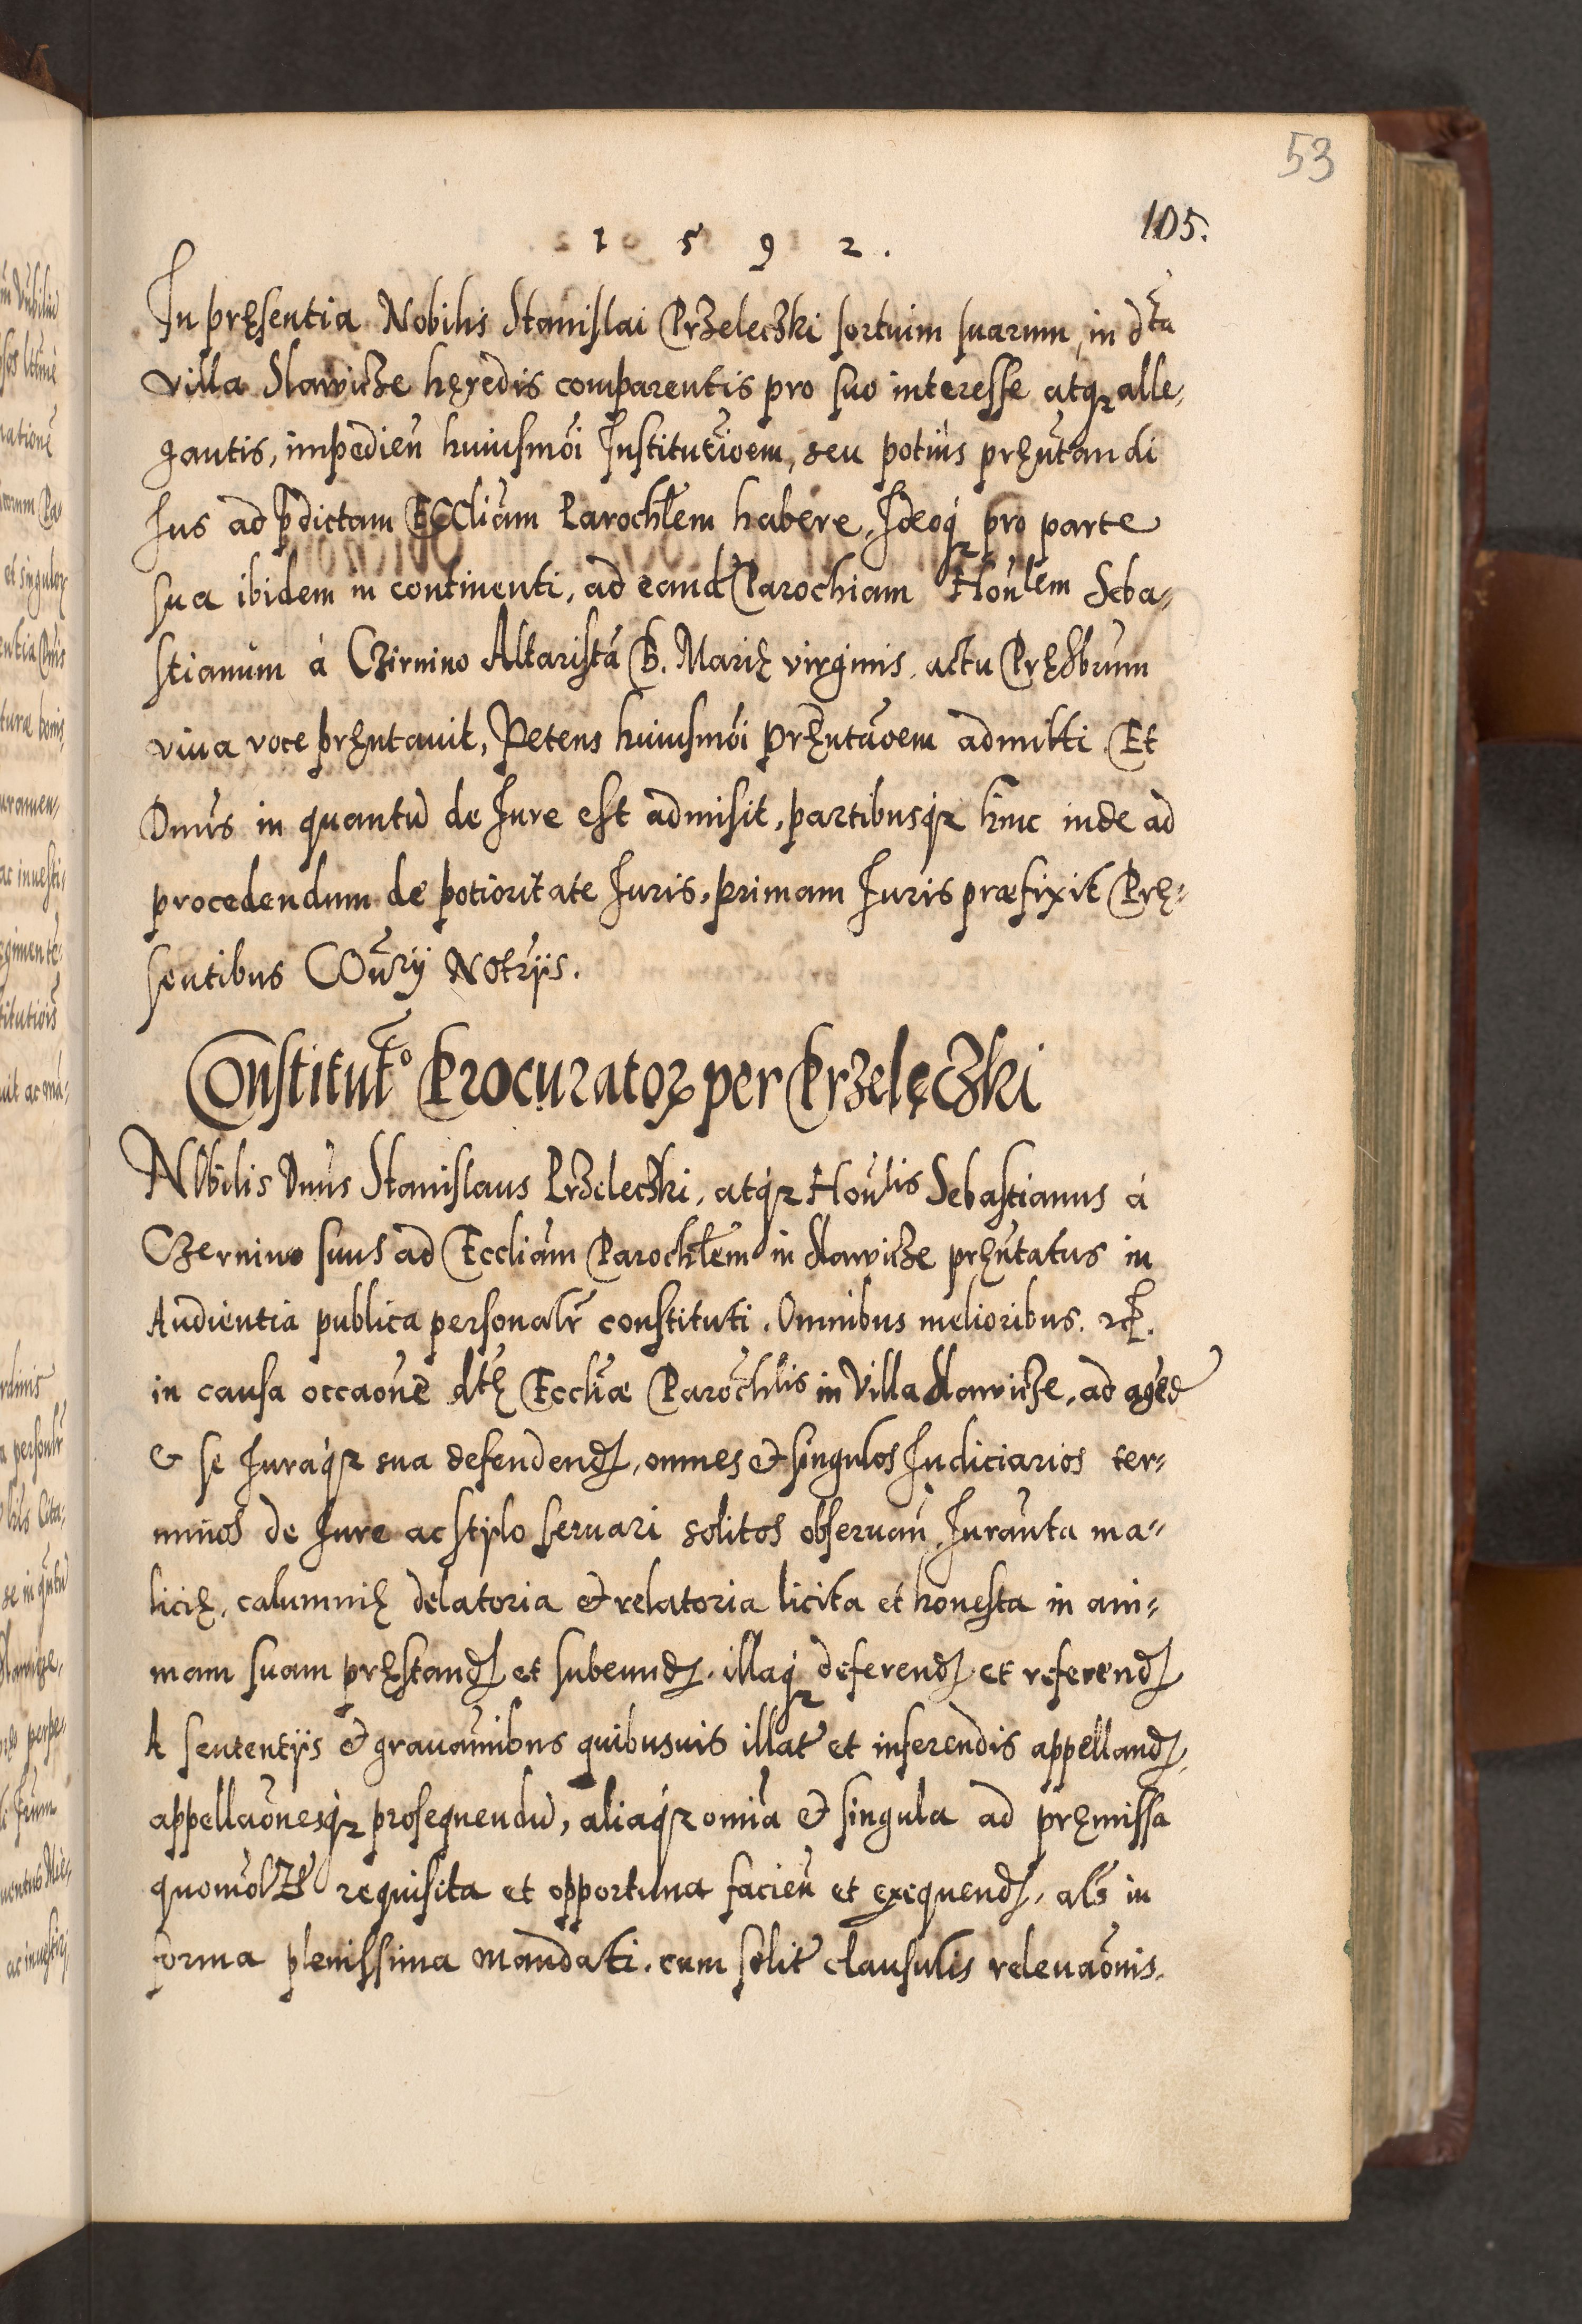 53
105.
1 5 9 2.
In pręsentia Nobilis Stanislai Przeleczki sortium suarum, in dta
villa Slawicze hęredis comparentis pro suo interesse atq; alle-
gantis, impedień huiusmōi Institutiōem, seu potius pręntandi
Jus ad pdictam ECCliam Parochlem habere, Ideoq; pro parte
sua ibidem in continenti, ad eand Parochiam Honlem Seba-
stianum à Czirnino Altaristā B. Marię virginis, actu Pręsbrum
viua voce pręntauit, Petens huiusmōi pręntāoem admitti. Et
Dnus in quantū de Jure est admisit, partibusq; hinc inde ad
procedendum de potioritate Juris, primam Juris præfixit Prę-
sentibus COnrÿ Notrÿs.
Constituto Procurator per Przelęczki
NObilis Dnus Stanislaus Przeleczki, atq; Honlis Sebastianus à
Czernino suus ad Eccliam Parochlem in Slawicze pręntatus in
Audientia publica personalr constituti. Omnibus melioribus. etc.
in causa occaōne dtę Eccliæ Parochlis in Villa Slawicze, ad aged
& se Juraq; sua defendend, omnes & singulos Judiciarios ter-
minos de Jure ac stylo seruari solitos obseruań, Juranta ma-
licię, calumnię delatoria & relatoria licita et honesta in ani-
mam suam pręstand et subeund, illaq; deferend et referend
A sententÿs & grauaminibus quibusuis illat et inferendis appelland,
appellaōnesq; prosequendū, aliaq; omia & singula ad pręmissa
quomōlzt requisita et opportuna facień et exequend, als in
forma plenissima mandati. cum solit clausulis releuaōnis.